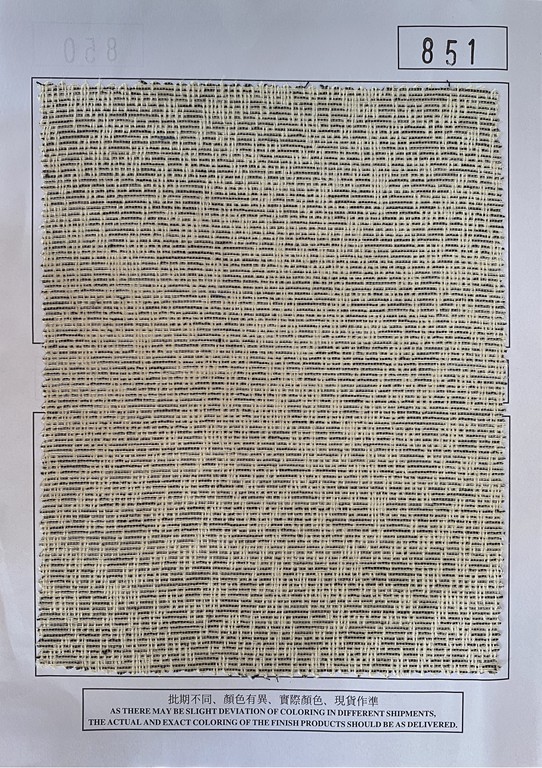 851
批期不同、顏色有異、實際顏色、現貨作準
AS THERE MAY BE SLIGHT DEVIATION OF COLORING IN DIFFERENT SHIPMENTS,
THE ACTUAL AND EXACT COLORING OF THE FINISH PRODUCTS SHOULD BE AS DELIVERED.